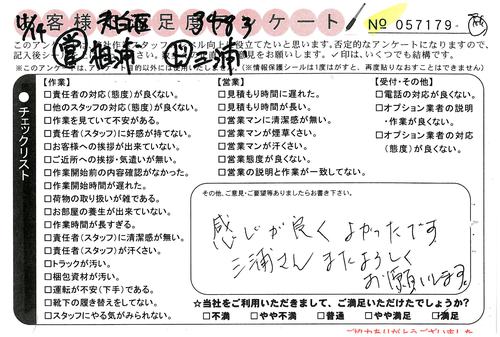 お客様満足度アンケート
No 057179
(営)相浦 (サ)三浦
【作業】
□責任者の対応(態度)が良くない。
□他のスタッフの対応(態度)が良くない。
□作業を見ていて不安がある。
□責任者(スタッフ)に好感が持てない。
□お客様への挨拶が出来ていない。
□ご近所への挨拶・気遣いが無い。
□作業開始前の内容確認がなかった。
□作業開始時間が遅れた。
□荷物の取り扱いが雑である。
□お部屋の養生が出来ていない。
□作業時間が長すぎる。
□責任者(スタッフ)に清潔感が無い。
□責任者(スタッフ)が汗くさい。
□トラックが汚い。
□梱包資材が汚い。
□運転が不安(下手)である。
□靴下の履き替えをしてない。
□スタッフにやる気がみられない。
【営業】
□見積もり時間に遅れた。
□見積もり時間が長い。
□営業マンに清潔感が無い。
□営業マンが煙草くさい。
□営業マンが汗くさい。
□営業態度が良くない。
□営業の説明と作業が一致してない。
【受付・その他】
□電話の対応が良くない。
□オプション業者の説明
・作業が良くない。
□オプション業者の対応
(態度)が良くない。
●チェックリスト
その他、ご意見・ご要望等ありましたらお書き下さい。
感じが良く よかったです
三浦さん またよろしく
お願いします。
☆当社をご利用いただきまして、ご満足いただけたでしょうか?
□不満 □やや不満 □普通 □やや満足 □満足